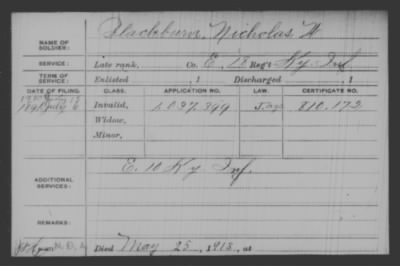 NAME OF SOLDIER: Blackburn, Nicholas W
SERVICE: Late rank, Co. E, 18 Reg't Ky Inf
TERM OF SERVICE: Enlisted , 1 Discharged , 1
DATE OF FILING. CLASS. APPLICATION NO. LAW. CERTIFICATE NO.
Invalid, 1,037,899 810,172
July 6
Widow,
Minor,
ADDITIONAL SERVICES: E. 10 Ky Inf.
REMARKS:
Died May 25, 1913, at